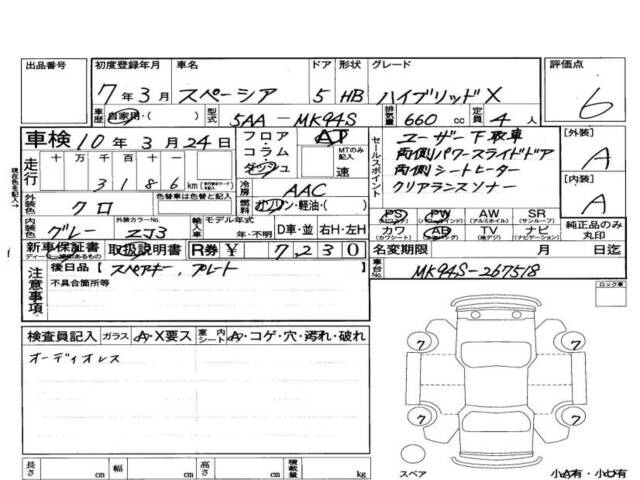 出品番号 初度登録年月 車名 ドア 形状 グレード 評価点
7年3月 スペーシア 5 HB ハイブリッドX 6
車歴 自家用・( ) 型式 5AA-MK94S 排気量 660cc 定員 4人
車検 10年3月24日 フロア・コラム・ダッシュ AT MTのみ記入 速
セールスポイント ユーザー下取車
両側パワースライドドア
両側シートヒーター
クリアランスソナー
[外装] A
[内装] A
現在色を記入→
走行 十万千百十 3186 km
冷房 AAC
外装色 クロ 色替車は色替と元色を記入 燃料 ガソリン・軽油・( )
内装色 グレー 外装カラーNo. ZJ3 輸入車 モデル年式 年・不明 D車・並 右H・左H
PS (パワステ) PW (パワーウインド) AW (アルミホイル) SR (サンルーフ)
カワ (カワシート) AB (エアバッグ) TV (地デジ) ナビ (ナビゲーション)
純正品のみ丸印
新車保証書 取扱説明書 R券 ¥7,230
名変期限 月 日迄
車台No. MK94S-267518
注意事項 後日品 [スペアキー、プレート
不具合箇所等
ロック車
検査員記入 ガラス A・X要ス 室内シート A・コゲ・穴・汚れ・破れ
オーディオレス
7 7
7 7
長さ cm 幅 cm 高さ cm 積載量 kg
スペア 小A有・小U有